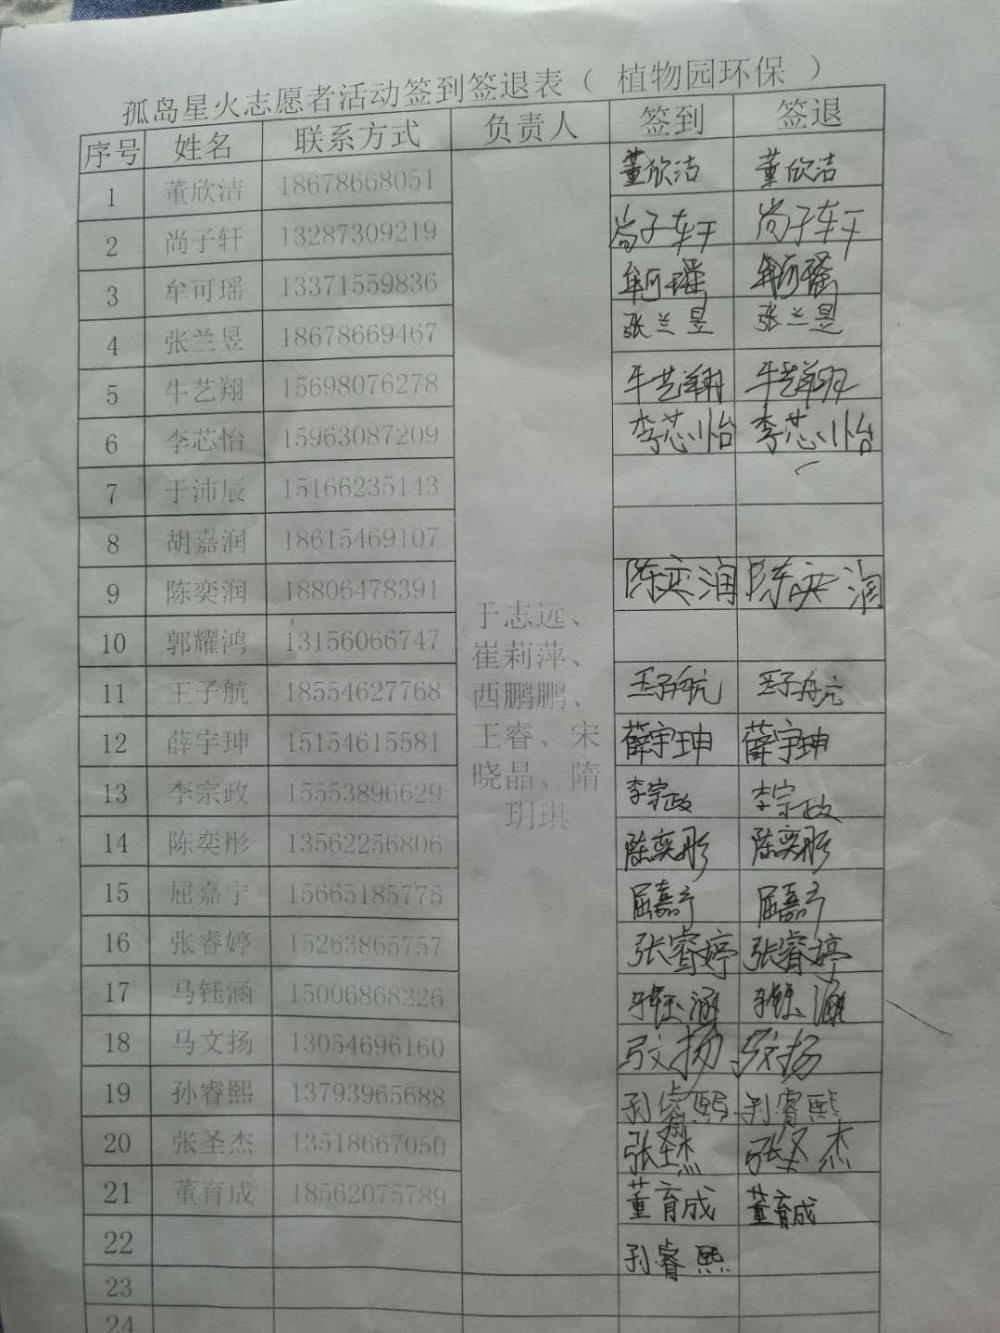 孤岛星火志愿者活动签到签退表（ 植物园环保 ）
序号 姓名 联系方式 负责人 签到 签退
1 董欣洁 18678668051 董欣洁 董欣洁
2 尚子轩 13287309219 尚子轩 尚子轩
3 牟可瑶 13371559836 牟可瑶 牟可瑶
4 张兰昱 18678669467 张兰昱 张兰昱
5 牛艺翔 15698076278 牛艺翔 牛艺翔
6 李芯怡 15963087209 李芯怡 李芯怡
7 于沛辰 15166235143
8 胡嘉润 18615469107
9 陈奕润 18806478391 陈奕润 陈奕润
于志远、
10 郭耀鸿 13156066747
崔莉萍、
11 王子航 18554627768 王子航 王子航
西鹏鹏、
12 薛宇珅 15154615581 薛宇珅 薛宇珅
王睿、宋
13 李宗政 15553896629 李宗政 李宗政
晓晶、隋
14 陈奕彤 13562256806 陈奕彤 陈奕彤
玥琪
15 屈嘉宁 15665185775 屈嘉宁 屈嘉宁
16 张睿婷 15263865757 张睿婷 张睿婷
17 马钰涵 15006868226 马钰涵 马钰涵
18 马文扬 13054696160 马文扬 马文扬
19 孙睿熙 13793965688 孙睿熙 孙睿熙
20 张圣杰 13518667050 张圣杰 张圣杰
21 董育成 18562075789 董育成 董育成
22 孙睿熙
23
24